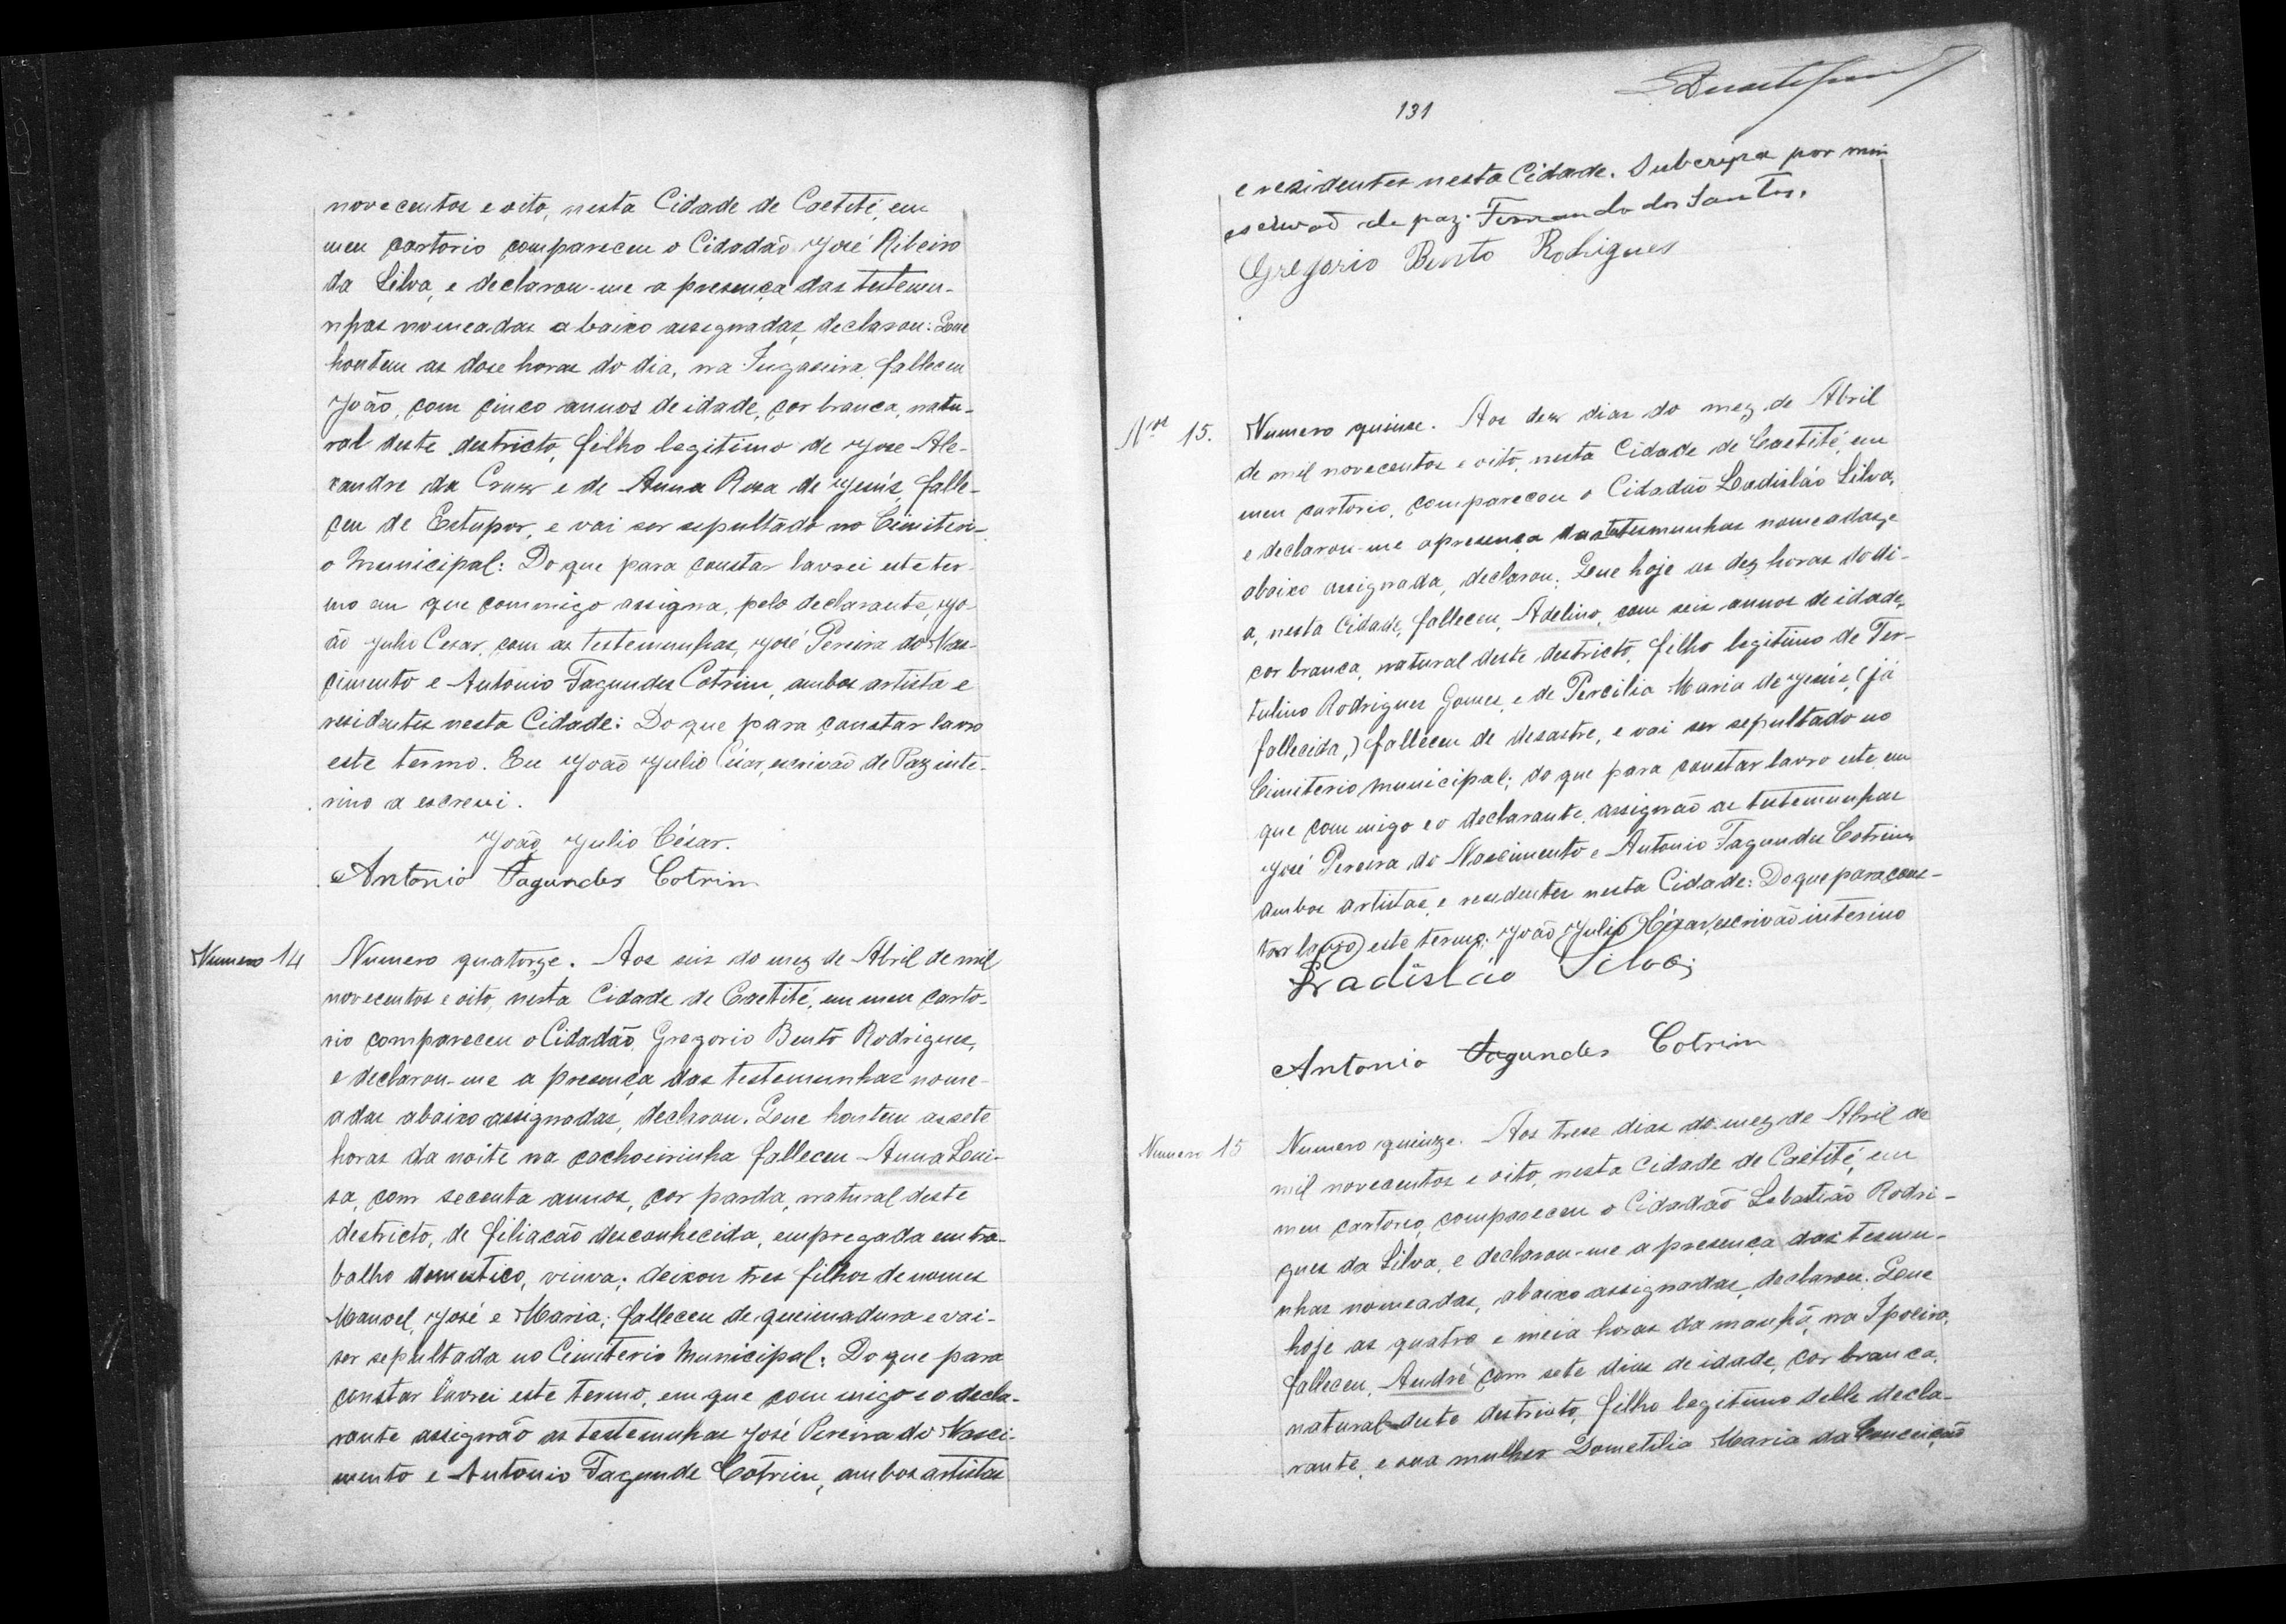 novecentos e oito, nesta Cidade de Caetité, em
meu cartorio compareceu o Cidadão José Ribeiro
da Silva, e declarou-me a presença das testemu-
nhas nomeadas abaixo assignadas, declarou: Que
hontem as dose horas do dia, na falleceu
João, com cinco annos de idade, cor branca, natu-
ral deste destricto, filho legitimo de Jose Ale-
xandre da Cruz e de Anna Rosa de Jesús, falle-
ceu de Estupor, e vai ser sepultado no Cimiteri-
o Municipal: Do que para constar lavrei este ter-
mo em que commigo assigna, pelo declarante, Jo-
ão Julio Cesar, com as testemunhas, José Pereira do Nas-
cimento e Antonio Fagundes Cotrim, ambos artista e
residentes nesta Cidade: Do que para constar lavro
este termo. Eu João Julio César, escrivão de Paz inte-
rino a escrevi.
João Julio César.
Antonio Fagundes Cotrim
Numero 14
Numero quatorze. Aos seis do mez de Abril de mil
novecentos e oito, nesta Cidade de Caetité, em meu carto-
rio compareceu o Cidadão, Gregorio Bento Rodrigues,
e declarou-me a presença das testemunhas nome-
adas abaixo assignadas, declarou. Que hontem as sete
horas da noite na cachoeirinha falleceu Anna Loui-
sa, com secenta annos, cor parda, natural deste
destricto, de filiacão desconhecida, empregada em tra-
balho domestico, viuva; deixou tres filhos de nomes
Manoel, José e Maria; falleceu de queimadura e vai-
ser sepultada no Cimiterio Municipal: Do que para
constar lavrei este termo, em que commigo e o decla-
rante assignão as testemunhas José Pereira do Nasci-
mento e Antonio Fagunde Cotrim, ambos artistas
131
e residentes nesta Cidade. Subcripta por mim
escrivaõ de paz. Fernando dos Santos.
Gregorio Bento Rodrigues
Nro 15.
Numero quinse. Aos dez dias do mez de Abril
de mil novecentos e oito, nesta Cidade de Caetité, em
meu cartorio, compareceu o Cidadão Ladisláo Silva,
e declarou-me apresença das testemunhas nomeadas, e
abaixo assignada, declarou: Que hoje as dez horas do di-
a, nesta Cidade, falleceu, Adelino, com seis annos de idade,
cor branca, natural deste destricto, filho legitimo de Ter-
tulino Rodrigues Gomes, e de Percilia Maria de Jesús, (já
fallecida,) falleceu de desastre, e vai ser sepultado no
Cimiterio Municipal; do que para constar lavro este, em
que commigo e o declarante, assignão as testemunhas
José Pereira do Nascimento e Antonio Fagundes Cotrim
ambos artistas, e residentes nesta Cidade: Do que para cons-
tar lavro este termo: João Julio César, escrivão interino
Ladislio Silva;
Antonio Fagundes Cotrim
Numero 15
Numero quinze. Aos trese dias do mez de Abril de
mil novecentos e oito, nesta Cidade de Caetité, em
meu cartorio, compareceu o Cidadão Sebastião Rodri-
gues da Silva, e declarou-me a presença das tesmu-
nhas nomeadas, abaixo assignadas, declarou. Que
hoje as quatro e meia horas da manhã, na Ipoeira,
falleceu, André com sete dias de idade, cor branca,
natural deste destricto, filho legitimo delle decla-
rante, e sua mulher Dometilia Maria da Conceição